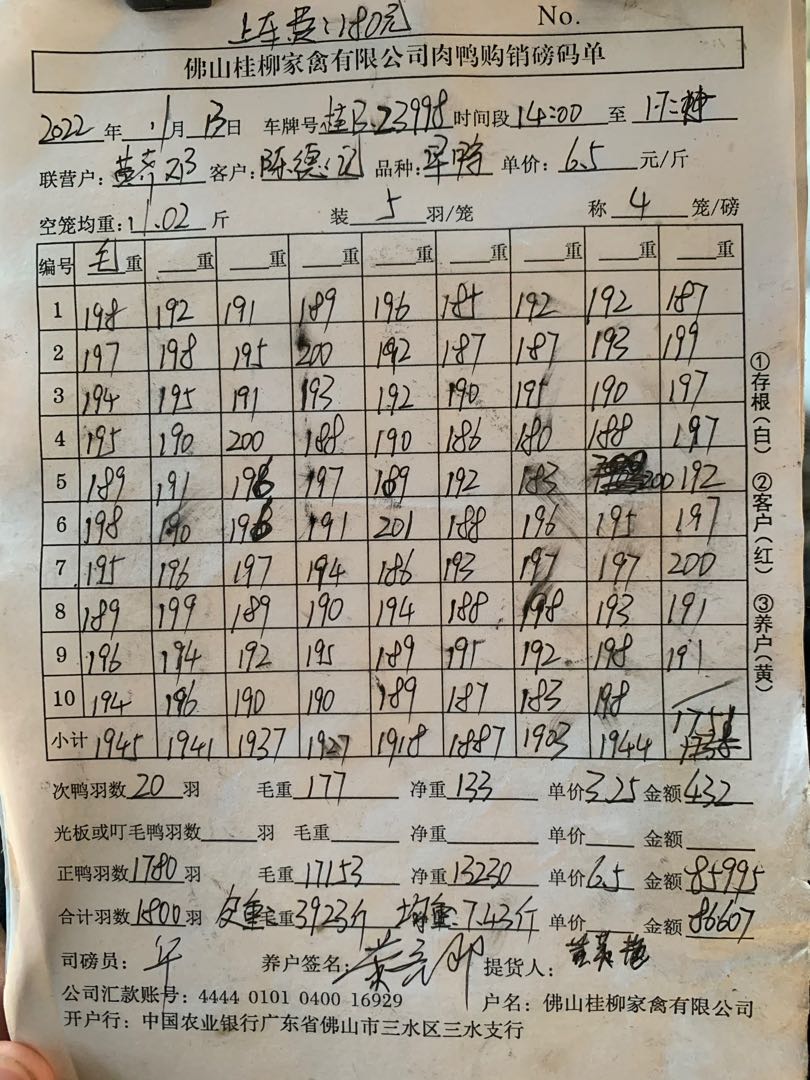 上车费:180元 No.
佛山桂柳家禽有限公司肉鸭购销磅码单
2022年 11月 13日 车牌号 桂B.23998 时间段 14:00 至
联营户: 客户: 陈德 品种: 单价: 6.5 元/斤
空笼均重: 11.02 斤 装 5 羽/笼 称 4 笼/磅
编号 毛重 重 重 重 重 重 重 重 重
1 198 192 191 189 196 185 192 192 187
2 197 198 195 200 192 187 187 193 199
3 194 195 191 193 192 190 195 190 197
4 195 190 200 188 190 186 180 188 197
5 189 191 196 197 189 192 183 200 192
6 198 190 196 191 201 188 196 195 197
7 195 196 197 194 186 193 197 197 200
8 189 199 189 190 194 188 198 193 191
9 196 194 192 195 189 191 192 198 191
10 194 196 190 190 189 187 183 198
小计 1945 1941 1937 1927 1918 1887 1903 1944 1751
次鸭羽数 20 羽 毛重 177 净重 133 单价 3.25 金额 432
光板或叮毛鸭羽数 羽 毛重 净重 单价 金额
正鸭羽数 1780 羽 毛重 17153 净重 13230 单价 6.5 金额 85995
合计羽数 1800 羽 皮重: 毛重 3923斤 均重: 7.43斤 单价 金额 86607
司磅员: 养户签名: 提货人:
公司汇款账号: 4444 0101 0400 16929 户名: 佛山桂柳家禽有限公司
开户行: 中国农业银行广东省佛山市三水区三水支行
①存根(白) ②客户(红) ③养户(黄)